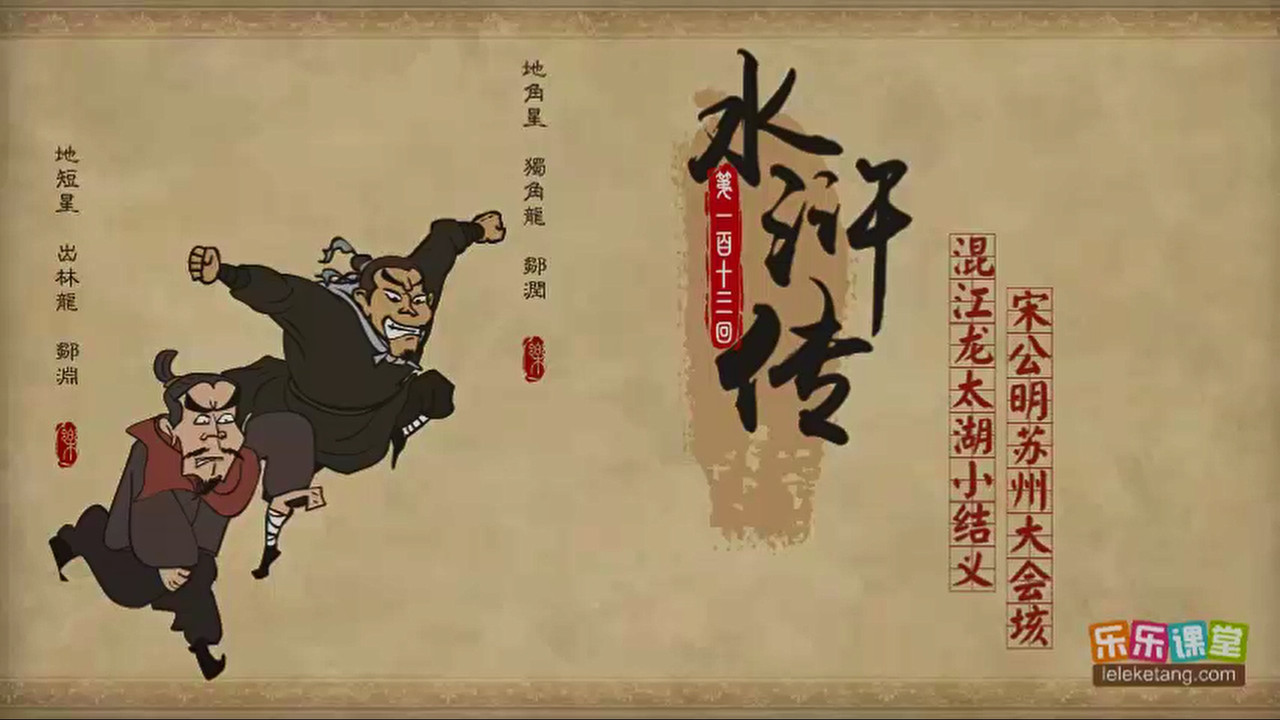 地短星 出林龍 鄒淵
地角星 獨角龍 鄒潤
水浒传
第一百十三回
混江龙太湖小结义
宋公明苏州大会垓
乐乐课堂
leleketang.com